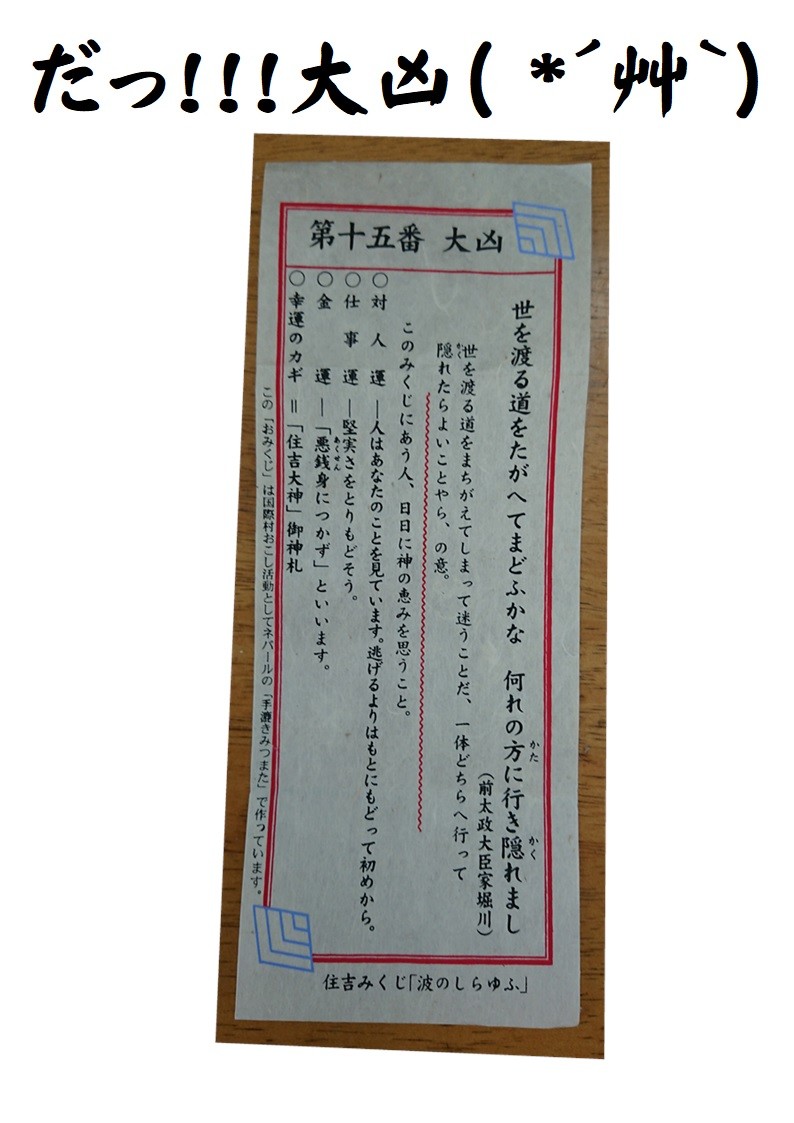 だっ!!!大凶( *´艸`)
第十五番 大凶
世を渡る道をたがへてまどふかな 何れの方に行き隠れまし
かた
かく
(前太政大臣家堀川)
世を渡る道をまちがえてしまって迷うことだ、一体どちらへ行って
隠れたらよいことやら、の意。
かく
このみくじにあう人、日日に神の恵みを思うこと。
○対人運―人はあなたのことを見ています。逃げるよりはもとにもどって初めから。
○仕事運―堅実さをとりもどそう。
○金運―「悪銭身につかず」といいます。
あくせん
○幸運のカギ=「住吉大神」御神札
この「おみくじ」は国際村おこし活動としてネパールの「手漉きみつまた」で作っています。
住吉みくじ「波のしらゆふ」